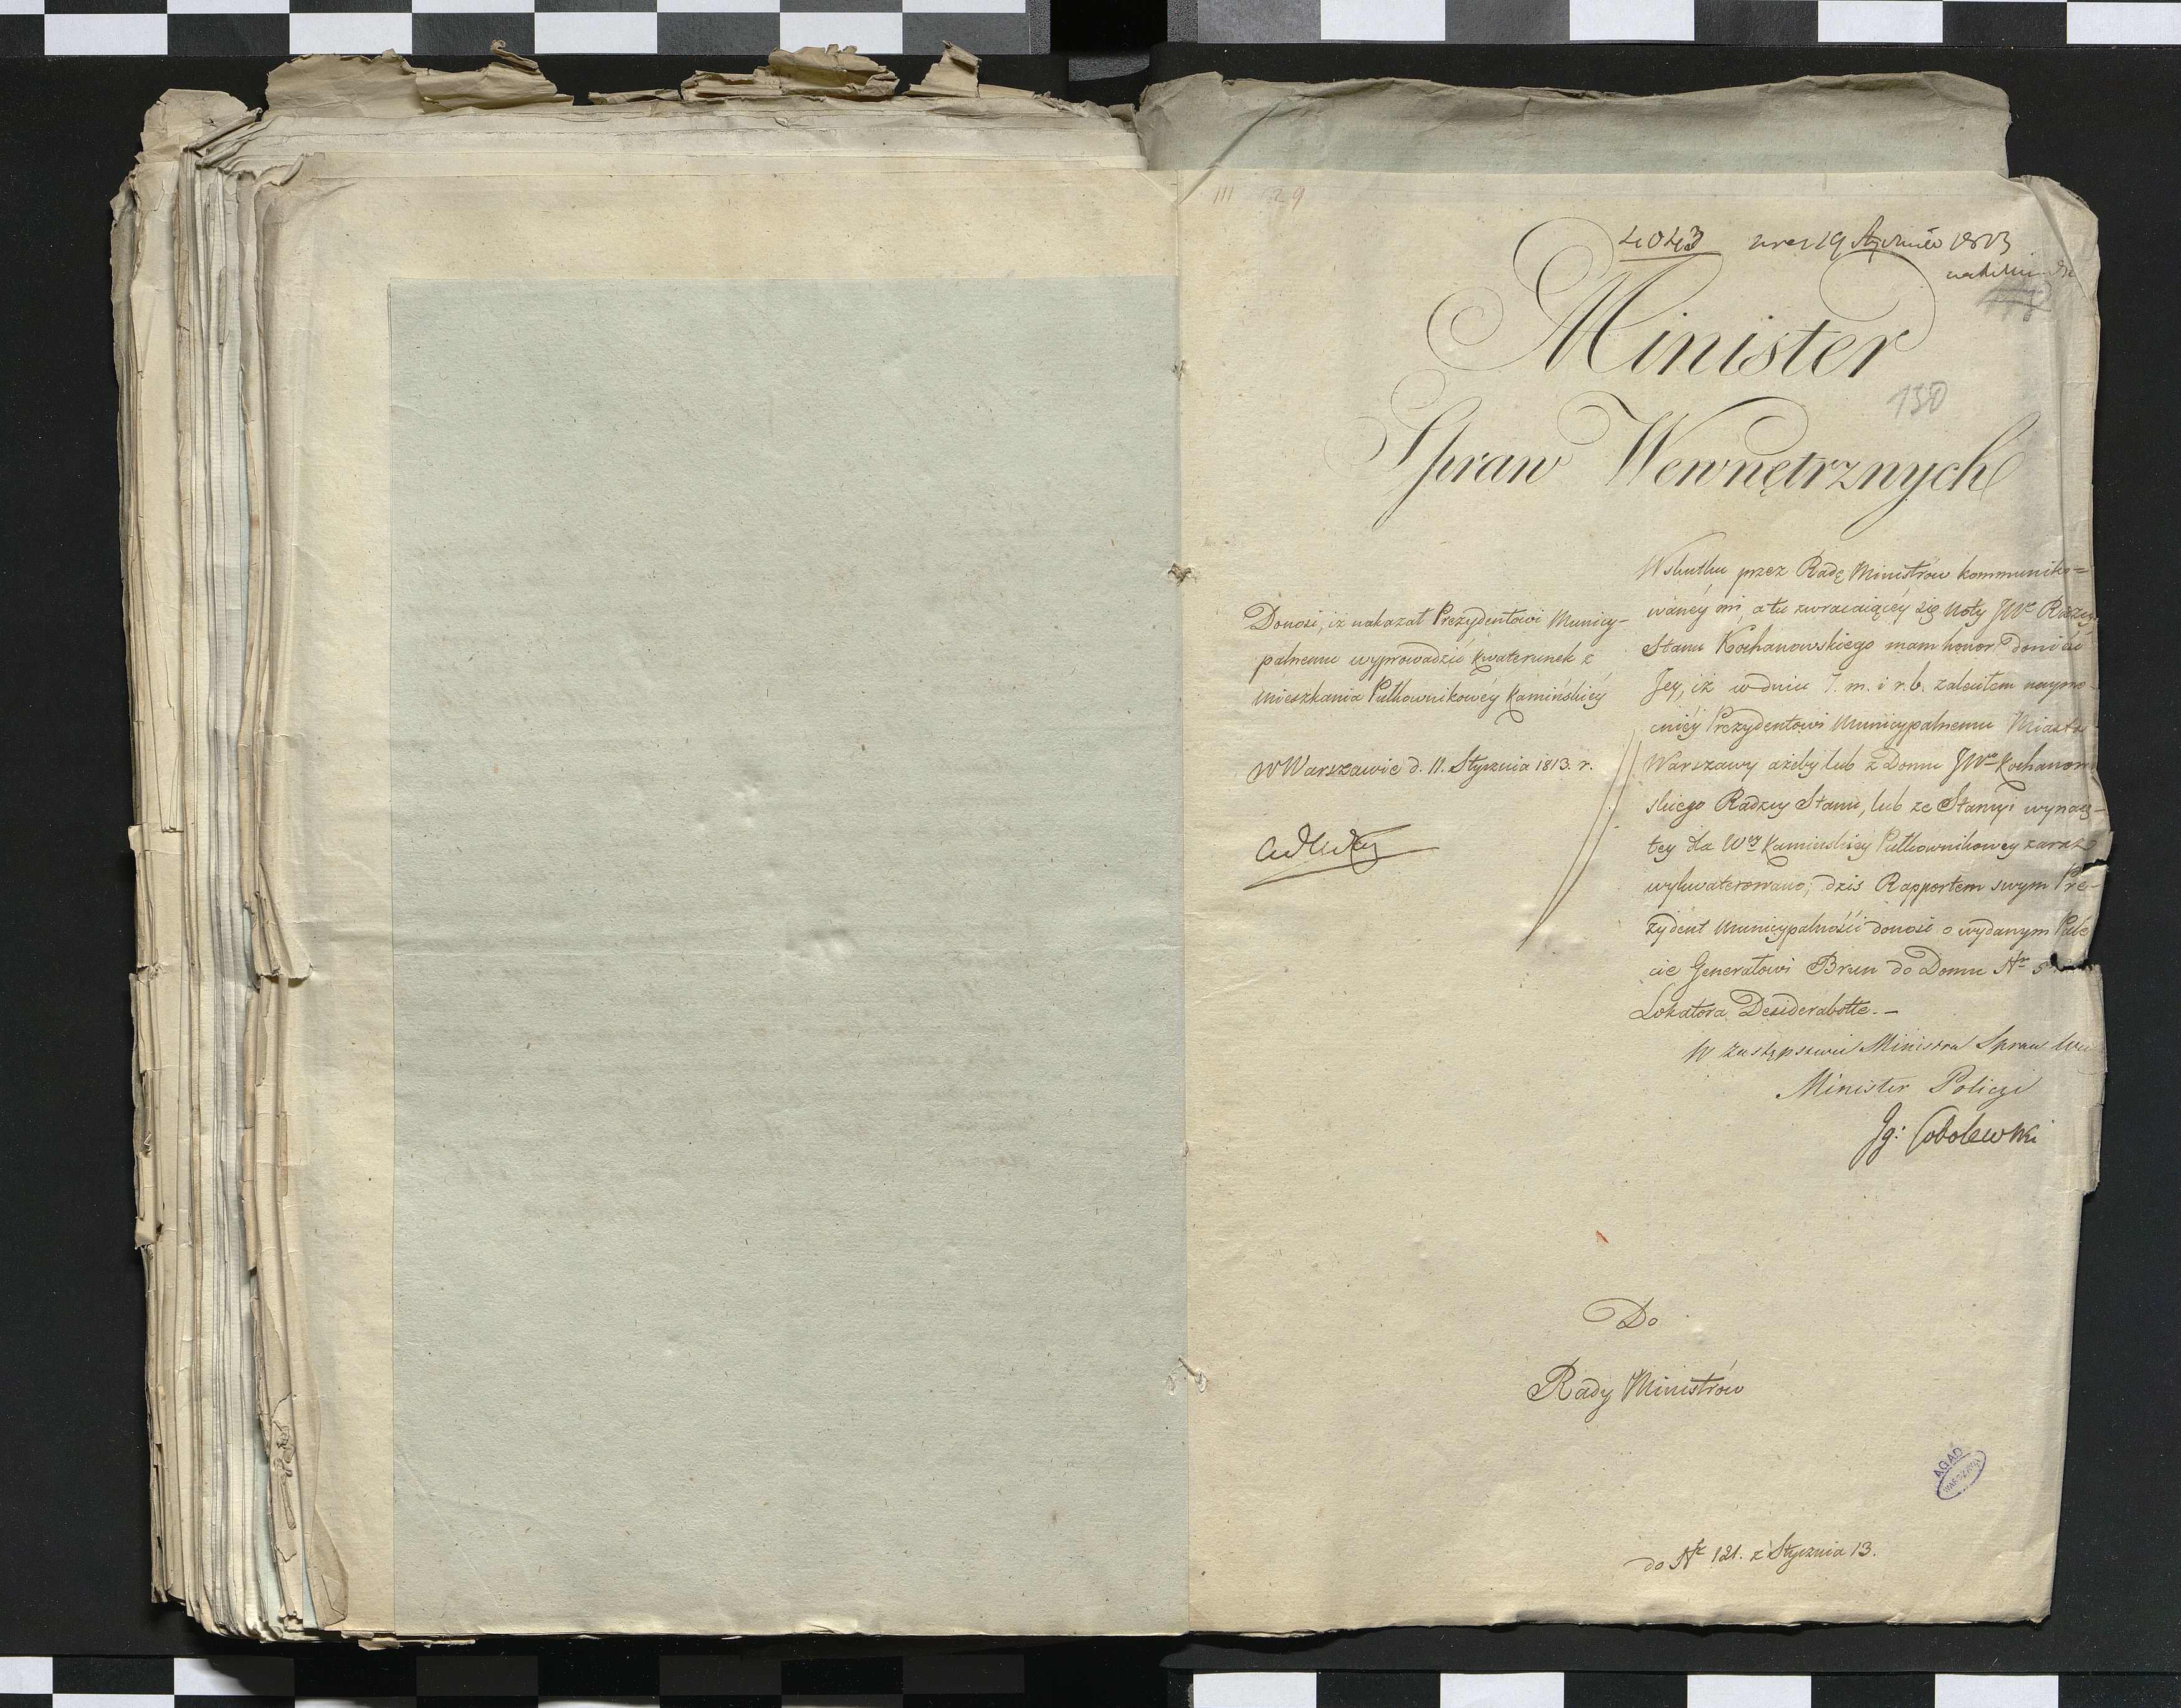 III 29
4043 19 Stycznia 1813
Minister
130
Spraw Wewnętrznych
Donosi, iż nakazał Prezydentowi Municy-
palnemu wyprowadzić kwaterunek z
mieszkania Pułkownikowéy Kamińskiéy
W Warszawie d. 11. Stycznia 1813. r.
W skutku przez Radę Ministrów kommuniko=
wanéy mi, a tu zwracaiącéy się Noty JWo Radzcy
Stanu Kochanowskiego mam honor donieść
Jey, iż w dniu 7. m. i r. b. zaleciłem naymo-
cniéy Prezydentowi Municypalnemu Miasta
Warszawy ażeby lub z Domu JWo Kochanow
skiego Radzcy Stanu, lub ze Stancyi wynaię-
tey dla Wey Kamińskiey Pułkownikowey zaraz
wykwaterowano; dziś Rapportem swym Pre-
zydent Municypalności donosi o wydanym Pale
cie Generałowi Brun do Domu Nr 5
Lokatora Desiderabotte. -
W Zastępstwie Ministra Spraw We
Minister Policyi
Jg: Sobolewski
Do
Rady Ministrów
AGAD
WARSZAWA
do Nr 121. z Stycznia 13.